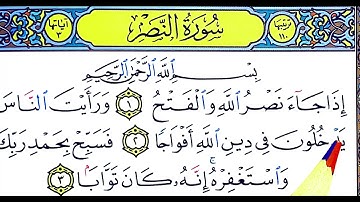 ترتيبها ١١٠ سُورَةُ النَّصْرِ آياتها ٣
بِسْمِ اللَّهِ الرَّحْمَٰنِ الرَّحِيمِ
إِذَا جَاءَ نَصْرُ اللَّهِ وَالْفَتْحُ ١ وَرَأَيْتَ النَّاسَ
يَدْخُلُونَ فِي دِينِ اللَّهِ أَفْوَاجًا ٢ فَسَبِّحْ بِحَمْدِ رَبِّكَ
وَاسْتَغْفِرْهُ إِنَّهُ كَانَ تَوَّابًا ٣